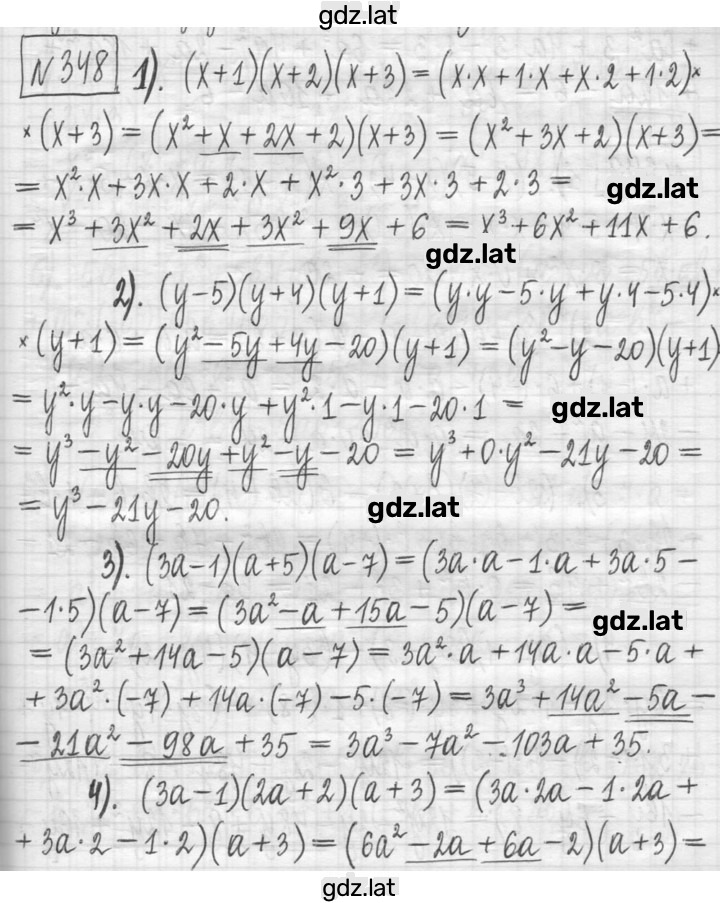 gdz.lat
N348 1). (x+1)(x+2)(x+3)=(x·x+1·x+x·2+1·2)×
×(x+3)=(x²+x+2x+2)(x+3)=(x²+3x+2)(x+3)=
=x²·x+3x·x+2·x+x²·3+3x·3+2·3= gdz.lat
=x³+3x²+2x+3x²+9x+6=x³+6x²+11x+6.
gdz.lat
2). (y-5)(y+4)(y+1)=(y·y-5·y+y·4-5·4)×
×(y+1)=(y²-5y+4y-20)(y+1)=(y²-y-20)(y+1)
=y²·y-y·y-20·y+y²·1-y·1-20·1= gdz.lat
=y³-y²-20y+y²-y-20=y³+0·y²-21y-20=
=y³-21y-20. gdz.lat
3). (3a-1)(a+5)(a-7)=(3a·a-1·a+3a·5-
-1·5)(a-7)=(3a²-a+15a-5)(a-7)= gdz.lat
=(3a²+14a-5)(a-7)=3a²·a+14a·a-5·a+
+3a²·(-7)+14a·(-7)-5·(-7)=3a³+14a²-5a-
-21a²-98a+35=3a³-7a²-103a+35.
4). (3a-1)(2a+2)(a+3)=(3a·2a-1·2a+
+3a·2-1·2)(a+3)=(6a²-2a+6a-2)(a+3)=
gdz.lat